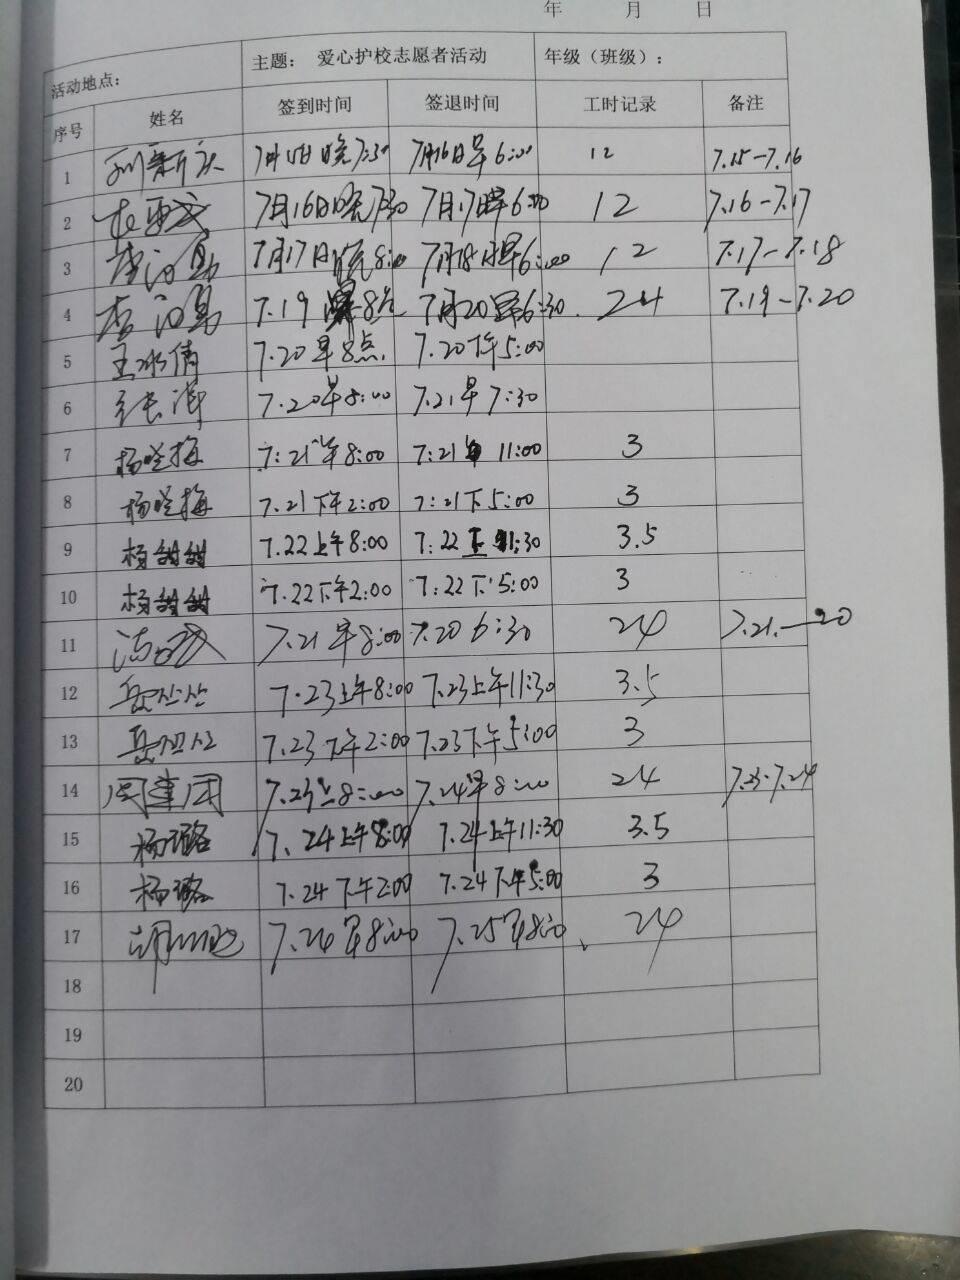 年 月 日
活动地点： 主题： 爱心护校志愿者活动 年级（班级）：
序号 姓名 签到时间 签退时间 工时记录 备注
1 7月16日早6:00 12 7.15-7.16
2 7月16日晚7:30 7月17早6:00 12 7.16-7.17
3 7月17日晚8:00 7月18日早6:00 12 7.17-7.18
4 7.19 8点 7月20早6:30 24 7.19-7.20
5 王冰倩 7.20早8点 7.20下午5:00
6 张洋 7.20早8:00 7.21早7:30
7 杨晓梅 7:21上午8:00 7:21 11:00 3
8 杨晓梅 7.21下午2:00 7:21下5:00 3
9 杨甜甜 7.22上午8:00 7:22上 11:30 3.5
10 杨甜甜 7.22下午2:00 7:22下5:00 3
11 7.21早8:00 7.20 6:30 24 7.21.—20
12 岳丛丛 7.23上午8:00 7.23上午11:30 3.5
13 岳丛丛 7.23下午2:00 7.23下午5:00 3
14 周建团 7.23上8:00 7.24早8:00 24 7.23-7.24
15 杨璐 7.24上午8:00 7.24上午11:30 3.5
16 杨璐 7.24下午2:00 7.24下午5:00 3
17 7.24早8:00 7.25早8:00、 24
18
19
20